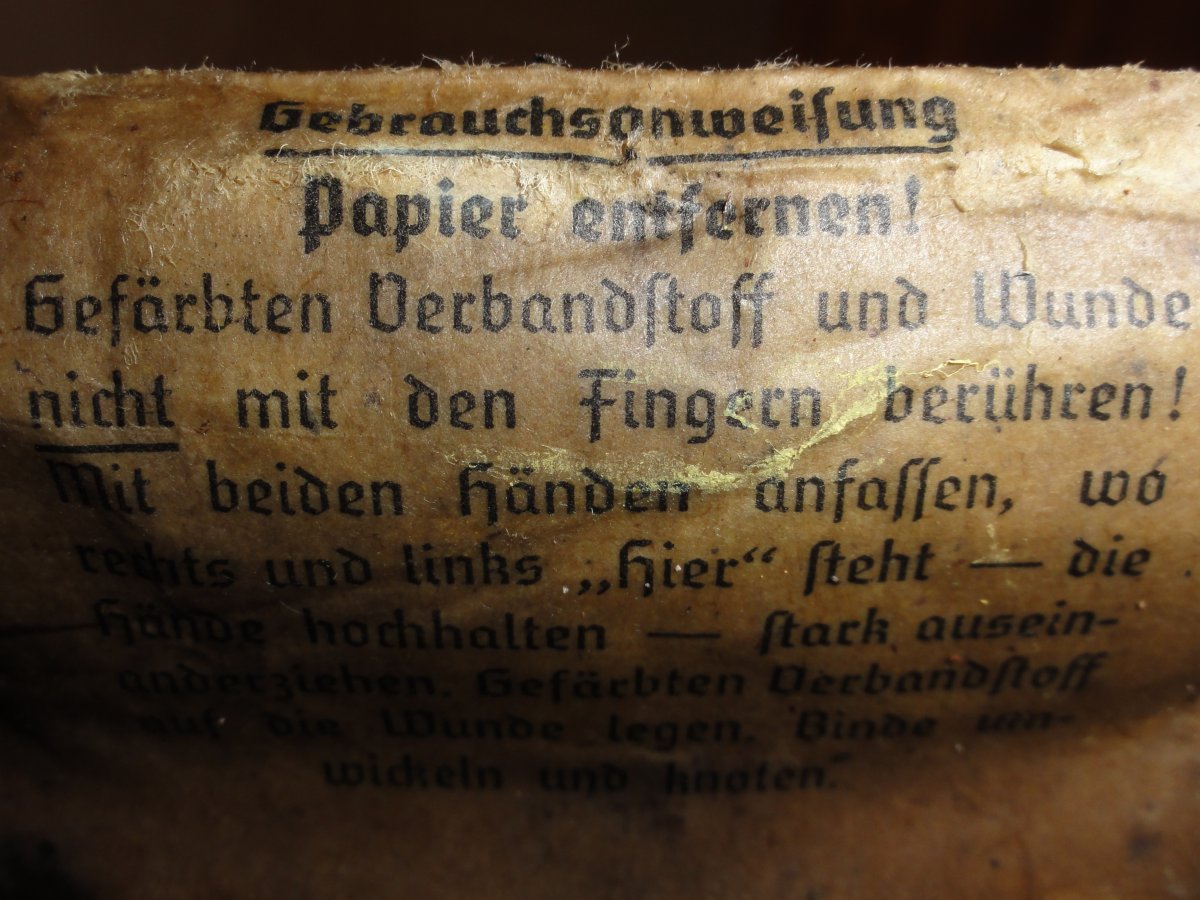 Gebrauchsanweiſung
Papier entfernen!
Gefärbten Verbandſtoff und Wunde
nicht mit den Fingern berühren!
Mit beiden Händen anfaſſen, wo
rechts und links „Hier“ ſteht — die
Hände hochhalten — ſtark ausein-
anderziehen. Gefärbten Verbandſtoff
auf die Wunde legen. Binde um-
wickeln und knoten.